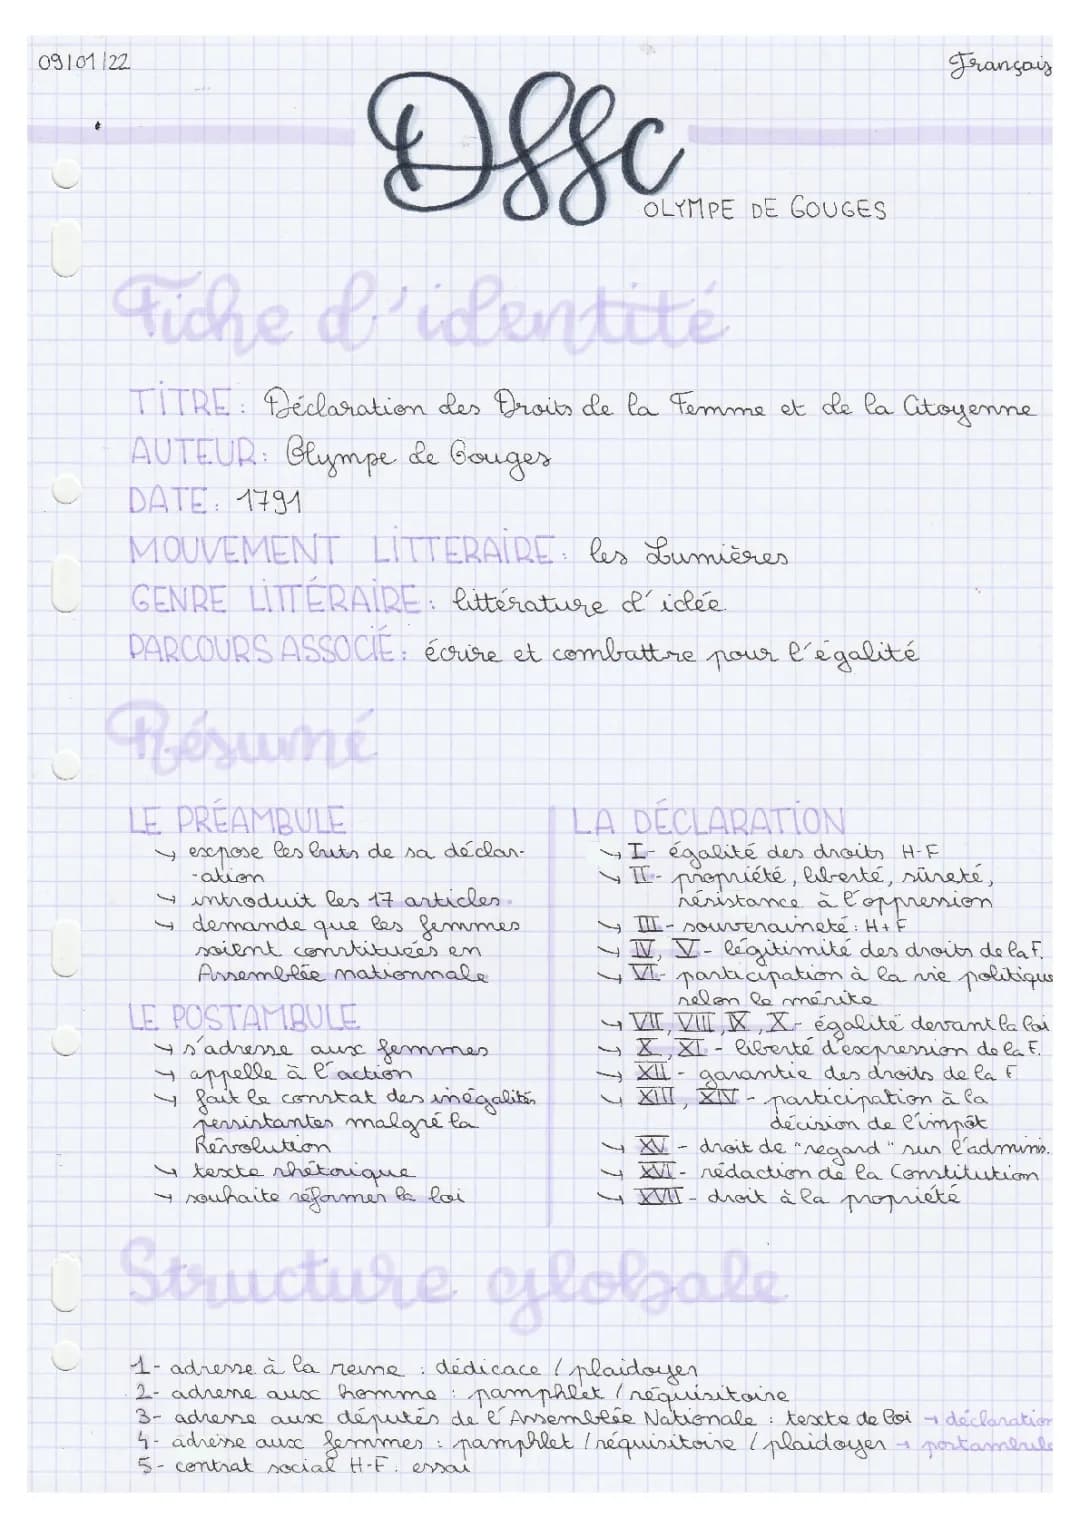 09/01/22
Français
Dffc
OLYMPE DE GOUGES
Fiche d'identité
TITRE: Déclaration des Droits de la Femme et de la Citoyenne
AUTEUR: Olympe de Gouges
DATE: 1791
MOUVEMENT LITTERAIRE: les Lumières
GENRE LITTÉRAIRE: littérature d'idée.
PARCOURS ASSOCIÉ: écrire et combattre pour l'égalité
Résumé
LE PRÉAMBULE
↳ expose les buts de sa déclar-
-ation
↳ introduit les 17 articles.
↳ demande que les femmes
soient constituées en
Assemblée nationnale
LE POSTAMBULE
↳ s'adresse aux femmes
↳ appelle à l'action
↳ fait le constat des inégalités
persistantes malgré la
Révolution
↳ texte rhétorique
↳ souhaite réformer la loi
LA DÉCLARATION
↳ I- égalité des droits H-F
↳ II- propriété, liberté, sûreté,
résistance à l'oppression
↳ III- souveraineté: H+F
↳ IV, V- légitimité des droits de la F.
↳ VI- participation à la vie politique
selon le mérite
↳ VII, VIII, IX, X- égalité devant la loi
↳ X, XI- liberté d'expression de la F.
↳ XII- garantie des droits de la F
↳ XIII, XIV- participation à la
décision de l'impôt
↳ XV- droit de "regard" sur l'adminis.
↳ XVI- rédaction de la Constitution
↳ XVII- droit à la propriété
Structure globale
1- adresse à la reine: dédicace / plaidoyer
2- adresse aux homme: pamphlet / réquisitoire
3- adresse aux députés de l'Assemblée Nationale: texte de loi → déclaration
4- adresse aux femmes: pamphlet / réquisitoire / plaidoyer → postambule
5- contrat social H-F: essai